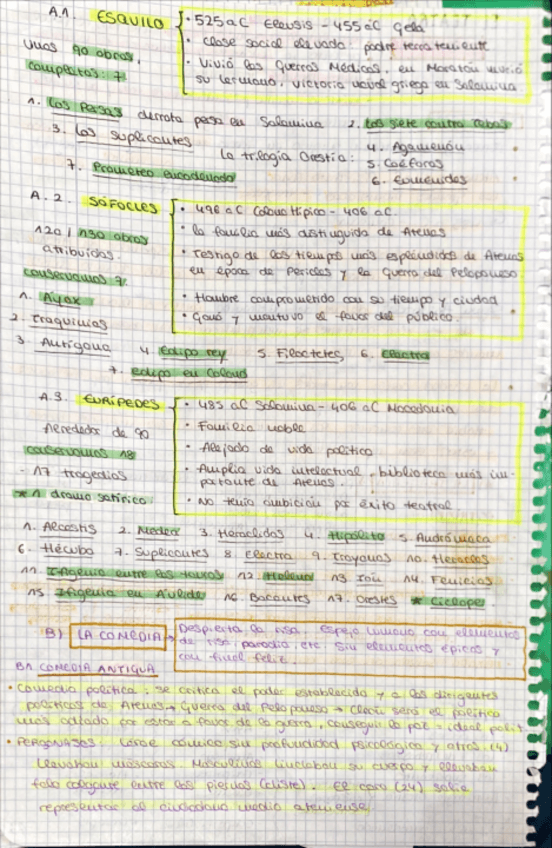 A.1. ESQUILO
· 525 a.C Eleusis - 455 a.C Gela
· Clase social elevada: padre terrateniente
· Vivió las Guerras Médicas, en Maratón murió
su hermano, victoria naval griega en Salamina
Unas 90 obras,
completas: 7
1. Los Persas derrota persa en Salamina 2. Los siete contra Tebas
3. Los suplicantes
La trilogía Orestía: 4. Agamenón
5. Coéforas
6. Euménides
7. Prometeo encadenado
A.2. SÓFOCLES
· 496 a.C Colono Hípico - 406 a.C.
· La familia más distinguida de Atenas
· Testigo de los tiempos más espléndidos de Atenas
en época de Pericles y la Guerra del Peloponeso
· Hombre comprometido con su tiempo y ciudad
· Ganó y mantuvo el favor del público.
120 / 130 obras
atribuidas.
conservamos 7.
1. Áyax
2. Traquinias
3. Antígona 4. Edipo rey 5. Filoctetes, 6. Electra
7. Edipo en Colono
A.3. EURÍPEDES
· 485 a.C Salamina - 406 a.C Macedonia
· Familia noble
· Alejado de vida política
· Amplia vida intelectual, biblioteca más im-
portante de Atenas.
· No tenía ambición por éxito teatral
Alrededor de 90
conservamos 18
- 17 tragedias
* 1 drama satírico.
1. Alcestis 2. Medea 3. Heraclidas 4. Hipólito 5. Andrómaca
6. Hécuba 7. Suplicantes 8. Electra 9. Troyanas 10. Heracles
11. Ifigenia entre los tauros 12. Helena 13. Ión 14. Fenicias
15. Ifigenia en Áulide 16. Bacantes 17. Orestes * Cíclope
B) LA COMEDIA → Despierta la risa. Espejo humano con elementos
de risa, parodia, etc. Sin elementos épicos y
con final feliz.
B1 COMEDIA ANTIGUA
· Comedia política: se critica el poder establecido y a los dirigentes
políticos de Atenas → Guerra del Peloponeso → Cleón será el político
más odiado por estar a favor de la guerra, conseguir la paz = ideal
· PERSONAJES: cómico sin profundidad psicológica y otros (4)
llevaban máscaras. Masculinos hinchaban su cuerpo y llevaban
falo colgante entre las piernas (chiste). El coro (24) solía
representar al ciudadano medio ateniense